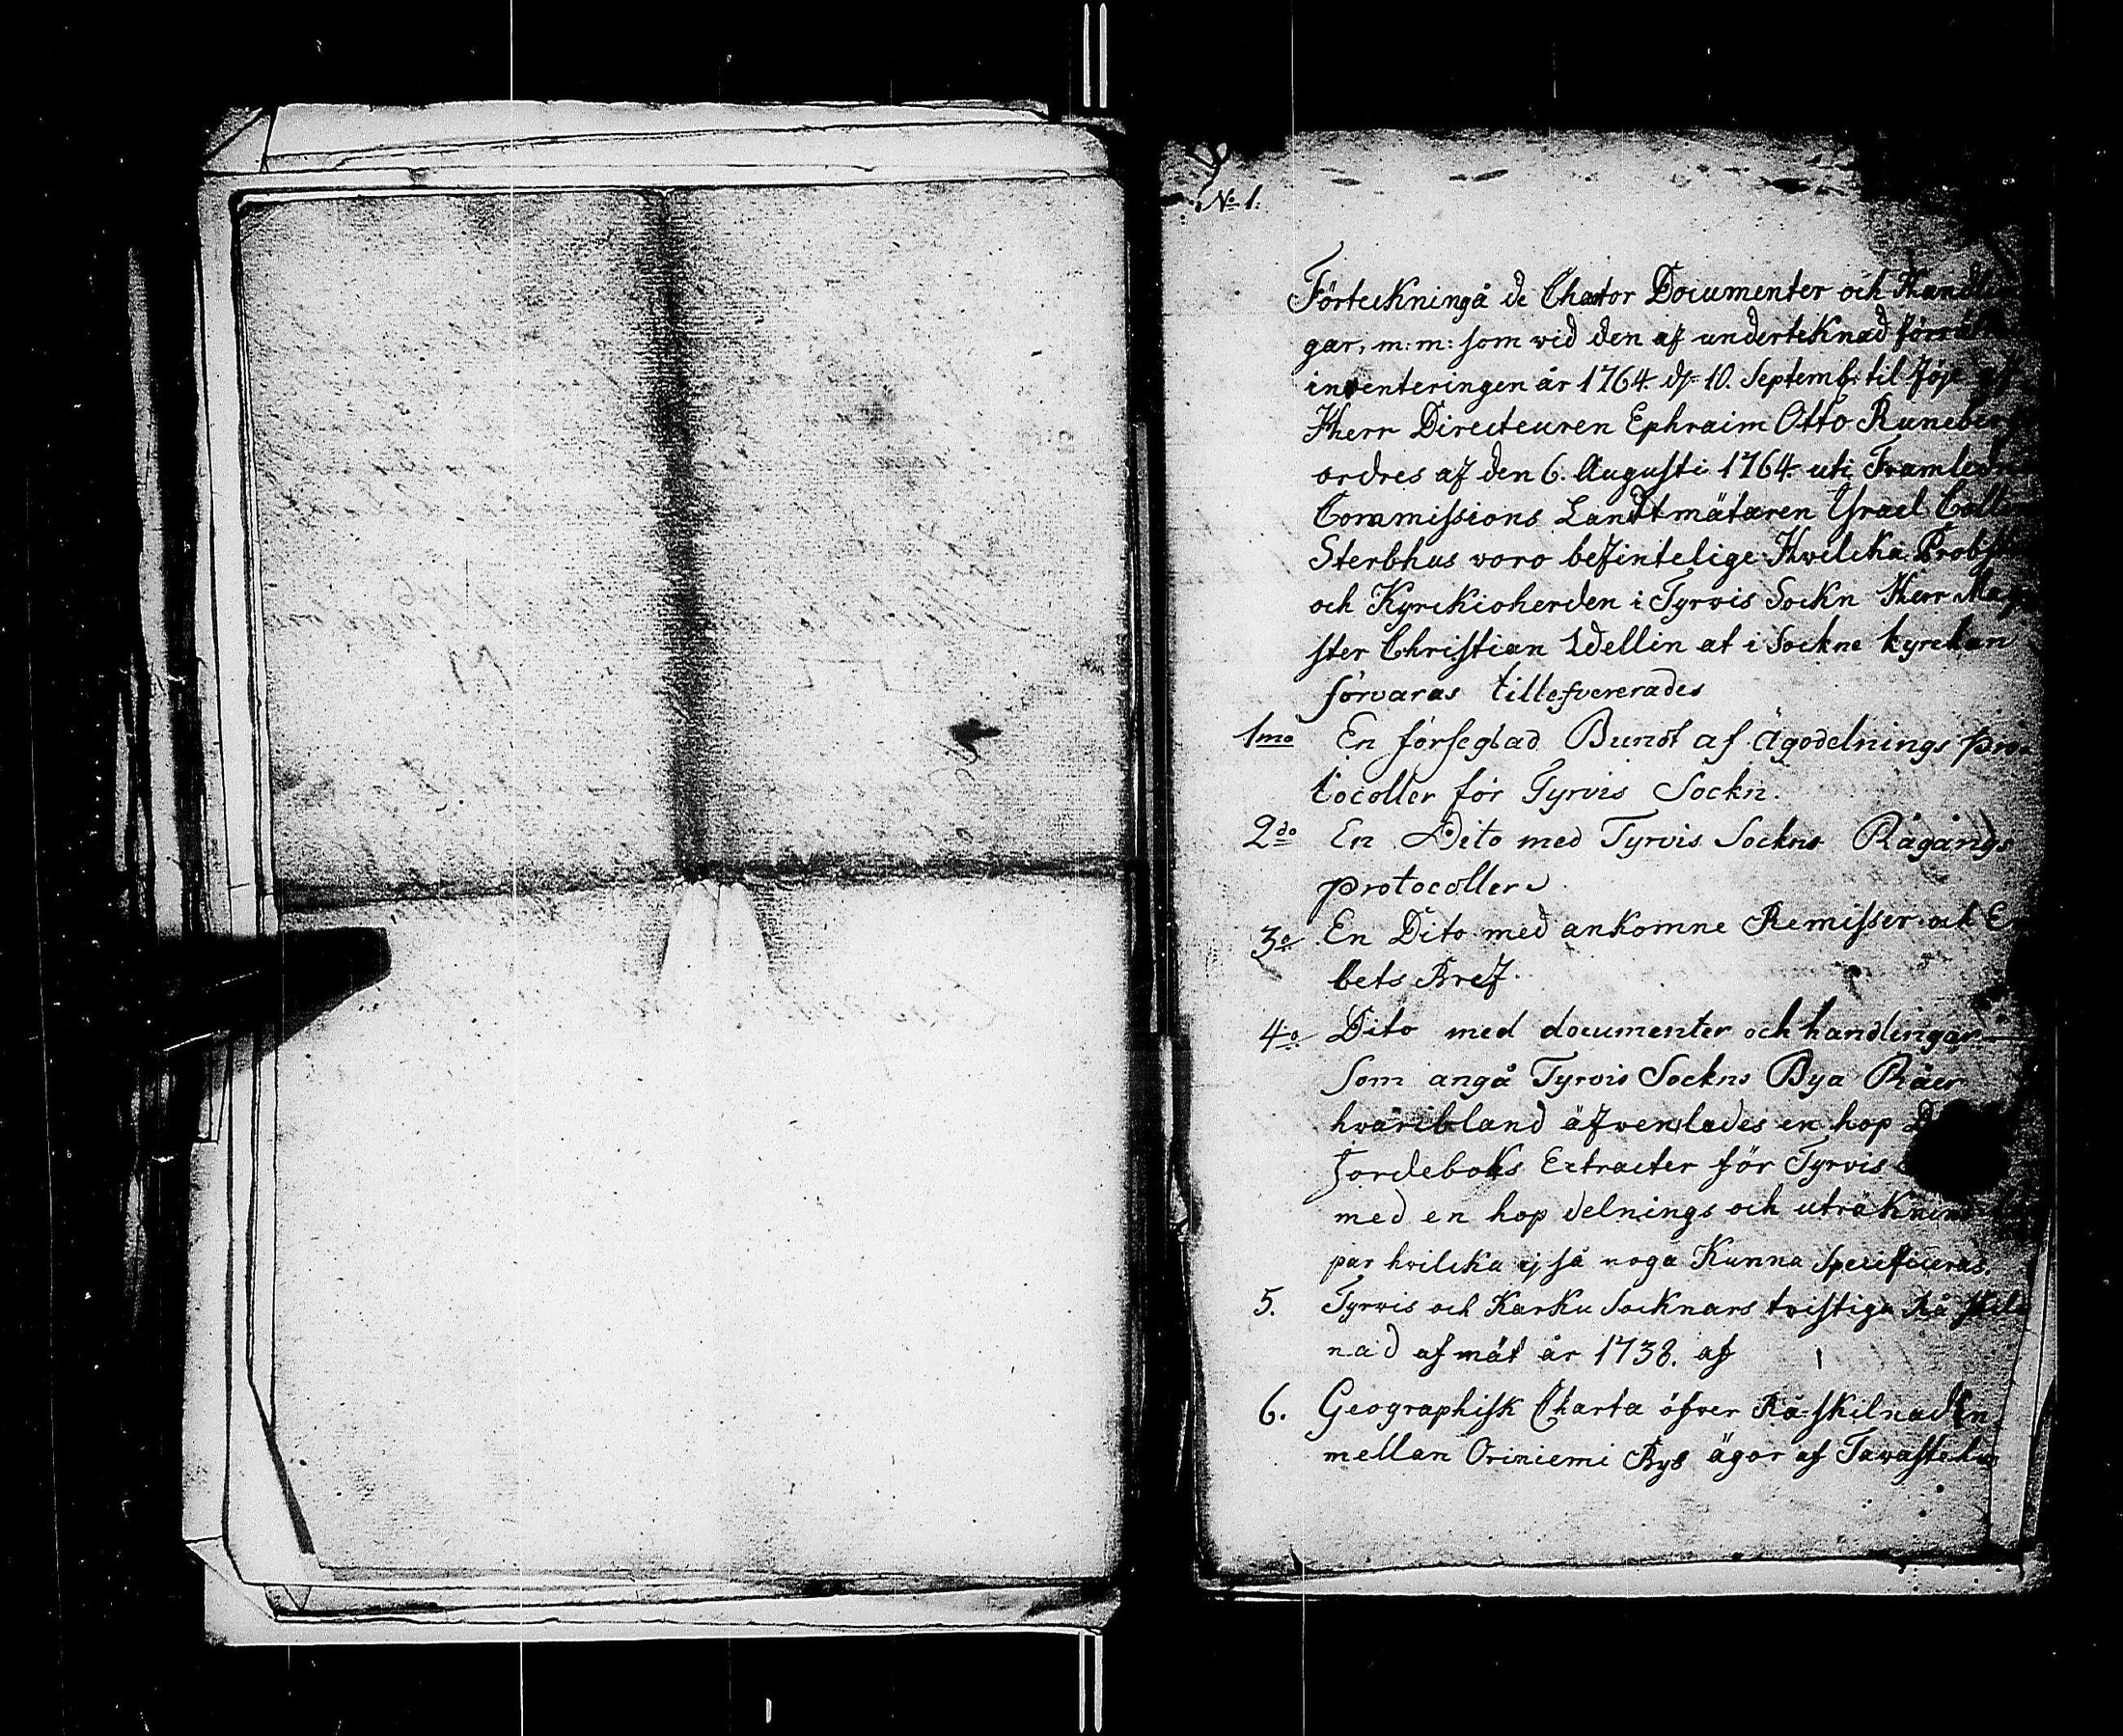 No 1.
Förteckning å de Chartor Documenter och Handlin
gar, m: m: som vid den af undertecknad förrät
inventeringen år 1764 d. 10. Septemb: til följe af
Herr Directeuren Ephraim Otto Runeberg
ordres af den 6. Augusti 1764. uti Framledne
Commissions Landtmätaren Israel Collin
Sterbhus voro befintelige Hvilcka Probste
och Kyrckioherden i Tyrvis Sockn Herr Magi
ster Christian Wellin at i Sockne kyrckan
förvaras tillefvererades
1mo En förseglad Bundt af Ägodelnings pro
tocoller för Tyrvis Sockn.
2do En Dito med Tyrvis Sockns Rågångs
protocoller
3o En Dito med ankomne Remisser och Em
bets Bref.
4o Dito med documenter och handlingar
Som angå Tyrvis Sockns Bya Råer
hvaribland äfven lades en hop
Jordeboks Extracter för Tyrvis
med en hop delnings och uträknings
par hvilcka ej så noga Kunna Specificeras.
5. Tyrvis och Karku Socknars tvistiga Rå skil
nad afmät år 1738. af
6. Geographisk Charta öfver Rå-skilnaden
mellan Oriniemi Bys ägor af Tavastehus